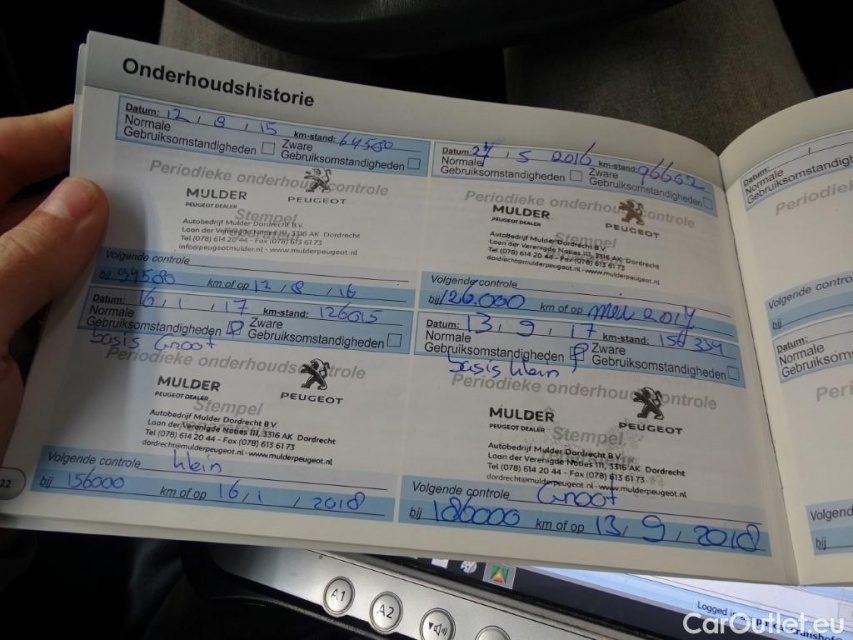 Onderhoudshistorie
Datum: 12 / 8 / 15 km-stand: 64580
Normale Gebruiksomstandigheden Zware Gebruiksomstandigheden
Periodieke onderhoudscontrole
MULDER
PEUGEOT DEALER
PEUGEOT
Stempel
Autobedrijf Mulder Dordrecht B.V.
Laan der Verenigde Naties 111, 3316 AK Dordrecht
Tel (078) 614 20 44 - Fax (078) 613 61 73
info@peugeotmulder.nl - www.mulderpeugeot.nl
Volgende controle
bij 94580 km of op 12 / 8 / 16
Datum: 27 / 5 2016 km-stand: 96652
Normale Gebruiksomstandigheden Zware Gebruiksomstandigheden
Periodieke onderhoudscontrole
MULDER
PEUGEOT DEALER
PEUGEOT
Stempel
Autobedrijf Mulder Dordrecht B.V.
Laan der Verenigde Naties 111, 3316 AK Dordrecht
Tel (078) 614 20 44 - Fax (078) 613 61 73
dordrecht@mulderpeugeot.nl - www.mulderpeugeot.nl
Volgende controle
bij 126.000 km of op mei 2017
Datum: 16 / 1 / 17 km-stand: 126015
Normale Gebruiksomstandigheden Zware Gebruiksomstandigheden
basis Groot
Periodieke onderhoudscontrole
MULDER
PEUGEOT DEALER
PEUGEOT
Stempel
Autobedrijf Mulder Dordrecht B.V.
Laan der Verenigde Naties 111, 3316 AK Dordrecht
Tel (078) 614 20 44 - Fax (078) 613 61 73
dordrecht@mulderpeugeot.nl - www.mulderpeugeot.nl
Volgende controle klein
bij 156000 km of op 16 / 1 / 2018
Datum: 13 / 9 / 17 km-stand: 156339
Normale Gebruiksomstandigheden Zware Gebruiksomstandigheden
basis klein
Periodieke onderhoudscontrole
MULDER
PEUGEOT DEALER
PEUGEOT
Stempel
Autobedrijf Mulder Dordrecht B.V.
Laan der Verenigde Naties 111, 3316 AK Dordrecht
Tel (078) 614 20 44 - Fax (078) 613 61 73
dordrecht@mulderpeugeot.nl - www.mulderpeugeot.nl
Volgende controle Groot
bij 186000 km of op 13 / 9 / 2018
22
Datum:
Normale
Gebruiksom
Periodiek
Volgende contro
bij
Datum:
Normale
Gebruiksom
Peri
Volgend
bij
A1
A2
Logged in
CarOutlet.eu